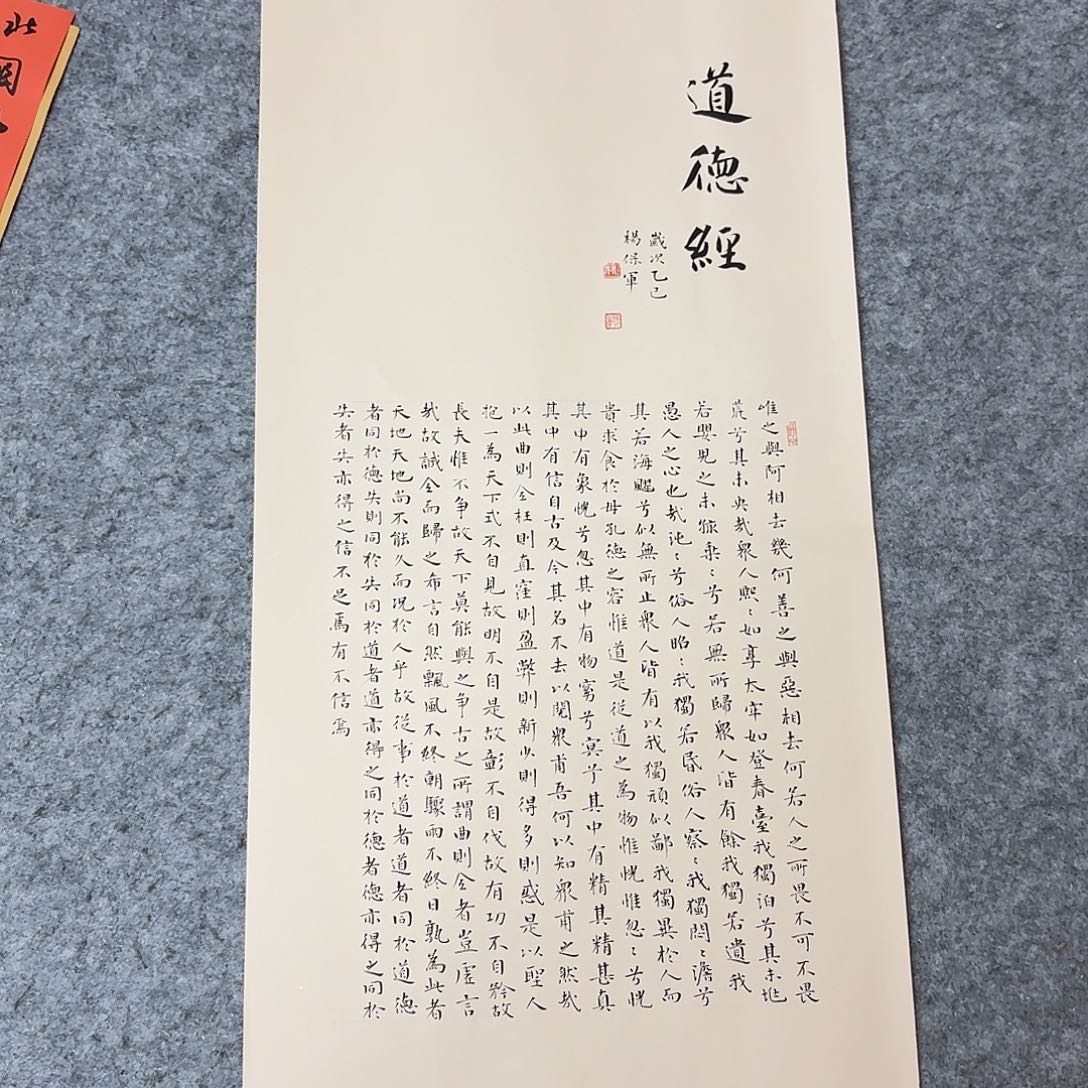 道德經
歲次乙巳
楊保軍
唯之與阿相去幾何善之與惡相去何若人之所畏不可不畏
荒兮其未央哉衆人熙〻如享太牢如登春臺我獨泊兮其未兆
若嬰兒之未孩乘〻兮若無所歸衆人皆有餘我獨若遺我
愚人之心也哉沌〻兮俗人昭〻我獨若昏俗人察〻我獨悶〻澹兮
其若海飂兮似無所止衆人皆有以我獨頑似鄙我獨異於人而
貴求食於母孔德之容惟道是從道之為物惟恍惟忽〻兮恍
其中有象恍兮忽其中有物窈兮冥兮其中有精其精甚真
其中有信自古及今其名不去以閱衆甫吾何以知衆甫之然哉
以此曲則全枉則直窪則盈弊則新少則得多則惑是以聖人
抱一為天下式不自見故明不自是故彰不自伐故有功不自矜故
長夫惟不爭故天下莫能與之爭古之所謂曲則全者豈虛言
哉故誠全而歸之希言自然飄風不終朝驟雨不終日孰為此者
天地天地尚不能久而況於人乎故從事於道者道者同於道德
者同於德失則同於失同於道者道亦得之同於德者德亦得之同於
失者失亦得之信不足焉有不信焉